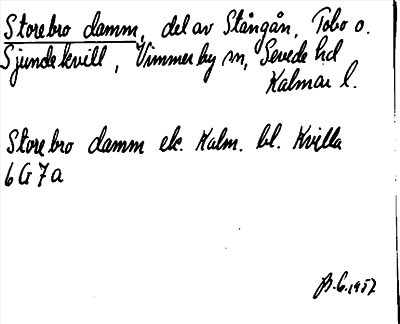 Storebro damm, del av Stångån, Tobo o.
Sjundekvill, Vimmerby sn, Sevede hd
Kalmar l.
Storebro damm ek. Kalm. bl. Kvilla
6G7a
1957